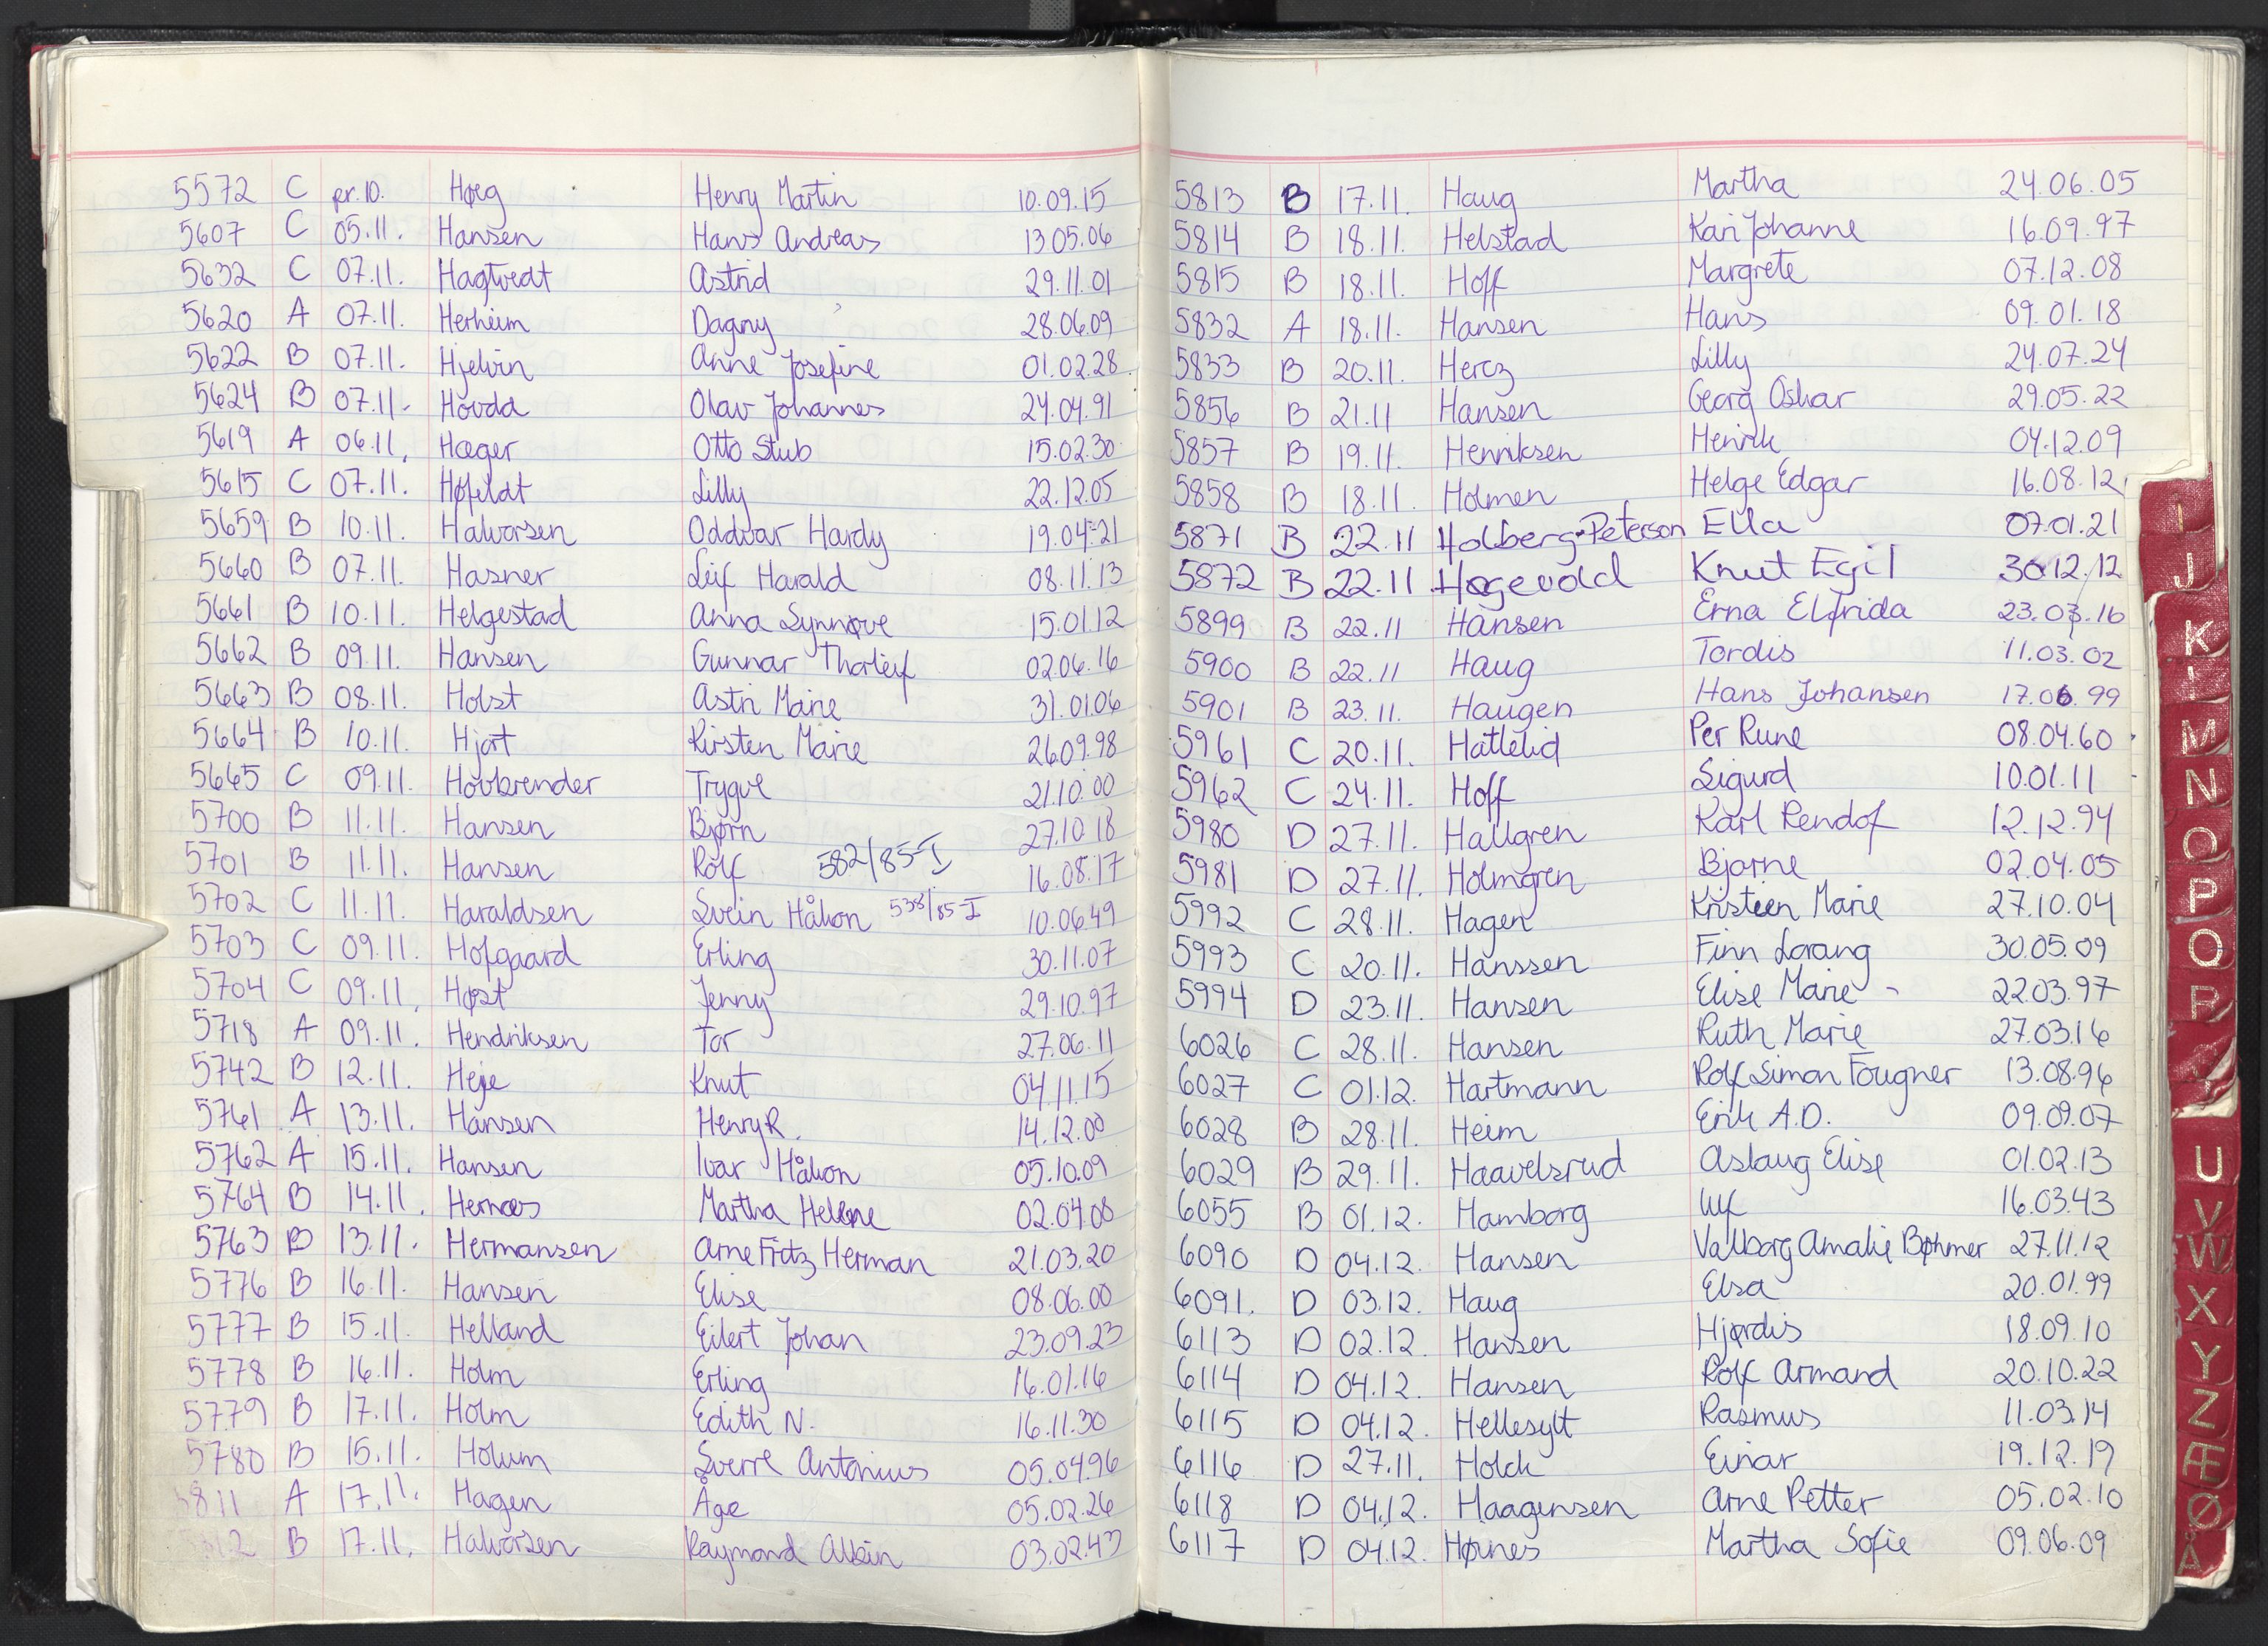 5572 C pr.10. Høeg Henry Martin 10.09.15
5607 C 05.11. Hansen Hans Andreas 13.05.06
5632 C 07.11. Hagtvedt Astrid 29.11.01
5620 A 07.11. Herheim Dagny 28.06.09
5622 B 07.11. Hjelvin Anne Josefine 01.02.28
5624 B 07.11. Hovda Olav Johannes 24.04.91
5619 A 06.11. Hæger Otto Stub 15.02.30
5615 C 07.11. Høfeldt Lilly 22.12.05
5659 B 10.11. Halvorsen Oddvar Hardy 19.04.21
5660 B 07.11. Hasner Leif Harald 08.11.13
5661 B 10.11. Helgestad Anna Synnøve 15.01.12
5662 B 09.11. Hansen Gunnar Thorleif 02.06.16
5663 B 08.11. Holst Astri Marie 31.01.06
5664 B 10.11. Hjort Kirsten Marie 26.09.98
5665 C 09.11. Hovbrender Trygve 21.10.00
5700 B 11.11. Hansen Bjørn 27.10.18
5701 B 11.11. Hansen Rolf 582/85-I 16.08.17
5702 C 11.11. Haraldsen Svein Håkon 538/85-I 10.06.49
5703 C 09.11. Hofgaard Erling 30.11.07
5704 C 09.11. Høst Jenny 29.10.97
5718 A 09.11. Hendriksen Tor 27.06.11
5742 B 12.11. Heje Knut 04.11.15
5761 A 13.11. Hansen Henry R. 14.12.00
5762 A 15.11. Hansen Ivar Håkon 05.10.09
5764 B 14.11. Hernæs Martha Helene 02.04.08
5763 B 13.11. Hermansen Arne Fritz Herman 21.03.20
5776 B 16.11. Hansen Elise 08.06.00
5777 B 15.11. Helland Eilert Johan 23.09.23
5778 B 16.11. Holm Erling 16.01.16
5779 B 17.11. Holm Edith N. 16.11.30
5780 B 15.11. Holum Sverre Antonius 05.04.96
5811 A 17.11. Hagen Åge 05.02.26
B 17.11. Halvorsen Raymond Albin 03.02.43
5813 B 17.11. Haug Martha 24.06.05
5814 B 18.11. Helstad Kari Johanne 16.09.97
5815 B 18.11. Hoff Margrete 07.12.08
5832 A 18.11. Hansen Hans 09.01.18
5833 B 20.11. Hercz Lilly 24.07.24
5856 B 21.11 Hansen Georg Oskar 29.05.22
5857 B 19.11. Henriksen Henrik 04.12.09
5858 B 18.11. Holmen Helge Edgar 16.08.12
5871 B 22.11 Holberg-Peterson Ella 07.01.21
5872 B 22.11 Høgevold Knut Egil 30.12.12
5899 B 22.11 Hansen Erna Elfrida 23.03.16
5900 B 22.11 Haug Tordis 11.03.02
5901 B 23.11. Haugen Hans Johansen 17.06.99
5961 C 20.11. Hatlelid Per Rune 08.04.60
5962 C 24.11. Hoff Sigurd 10.01.11
5980 D 27.11. Hallgren Karl Rendof 12.12.94
5981 D 27.11. Holmgren Bjarne 02.04.05
5992 C 28.11. Hagen Kristeen Marie 27.10.04
5993 C 20.11. Hanssen Finn Lorang 30.05.09
5994 D 23.11. Hansen Elise Marie 22.03.97
6026 C 28.11. Hansen Ruth Marie 27.03.16
6027 C 01.12. Hartmann Rolf Simon Fougner 13.08.96
6028 B 28.11. Heim Erik A.D. 09.09.07
6029 B 29.11. Haavelsrud Aslaug Elise 01.02.13
6055 B 01.12. Hamborg Ulf 16.03.43
6090 D 04.12. Hansen Valborg Amalie Bøhmer 27.11.12
6091. D 03.12. Haug Elsa 20.01.99
6113 D 02.12. Hansen Hjørdis 18.09.10
6114 D 04.12. Hansen Rolf Armand 20.10.22
6115 D 04.12. Hellesylt Rasmus 11.03.14
6116 D 27.11. Holck Einar 19.12.19
6118 D 04.12. Haagensen Arne Petter 05.02.10
6117 D 04.12. Høines Martha Sofie 09.06.09
I
J
K
M
N
O
P
Q
R
U
V
W
X
Y
Z
Æ
Ø
Å